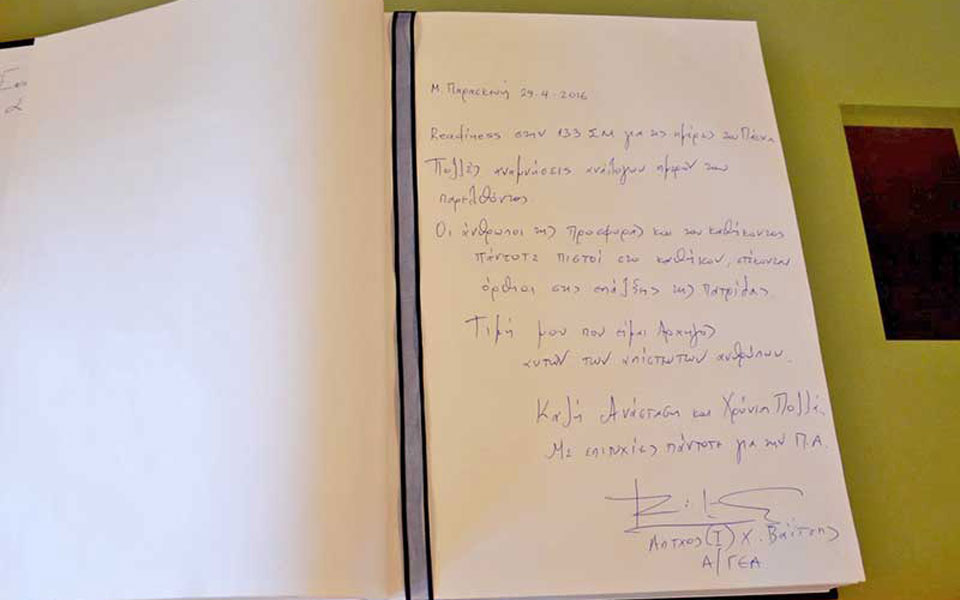 Μ. Παρασκευή 29-4-2016
Readiness στην 133 ΣΜ για τις ημέρες του Πάσχα
Πολλές αναμνήσεις ανάλογων ημερών του
παρελθόντος
Οι άνθρωποι της προσφοράς και του καθήκοντος
πάντοτε πιστοί στο καθήκον, στέκονται
όρθιοι στις επάλξεις της Πατρίδας
Τιμή μου που είμαι Αρχηγός
αυτών των απίστευτων ανθρώπων.
Καλή Ανάσταση και Χρόνια Πολλά.
Με επιτυχίες πάντοτε για την Π.Α.
Αντχος (Ι) Χ. Βαΐτσης
Α/ΓΕΑ